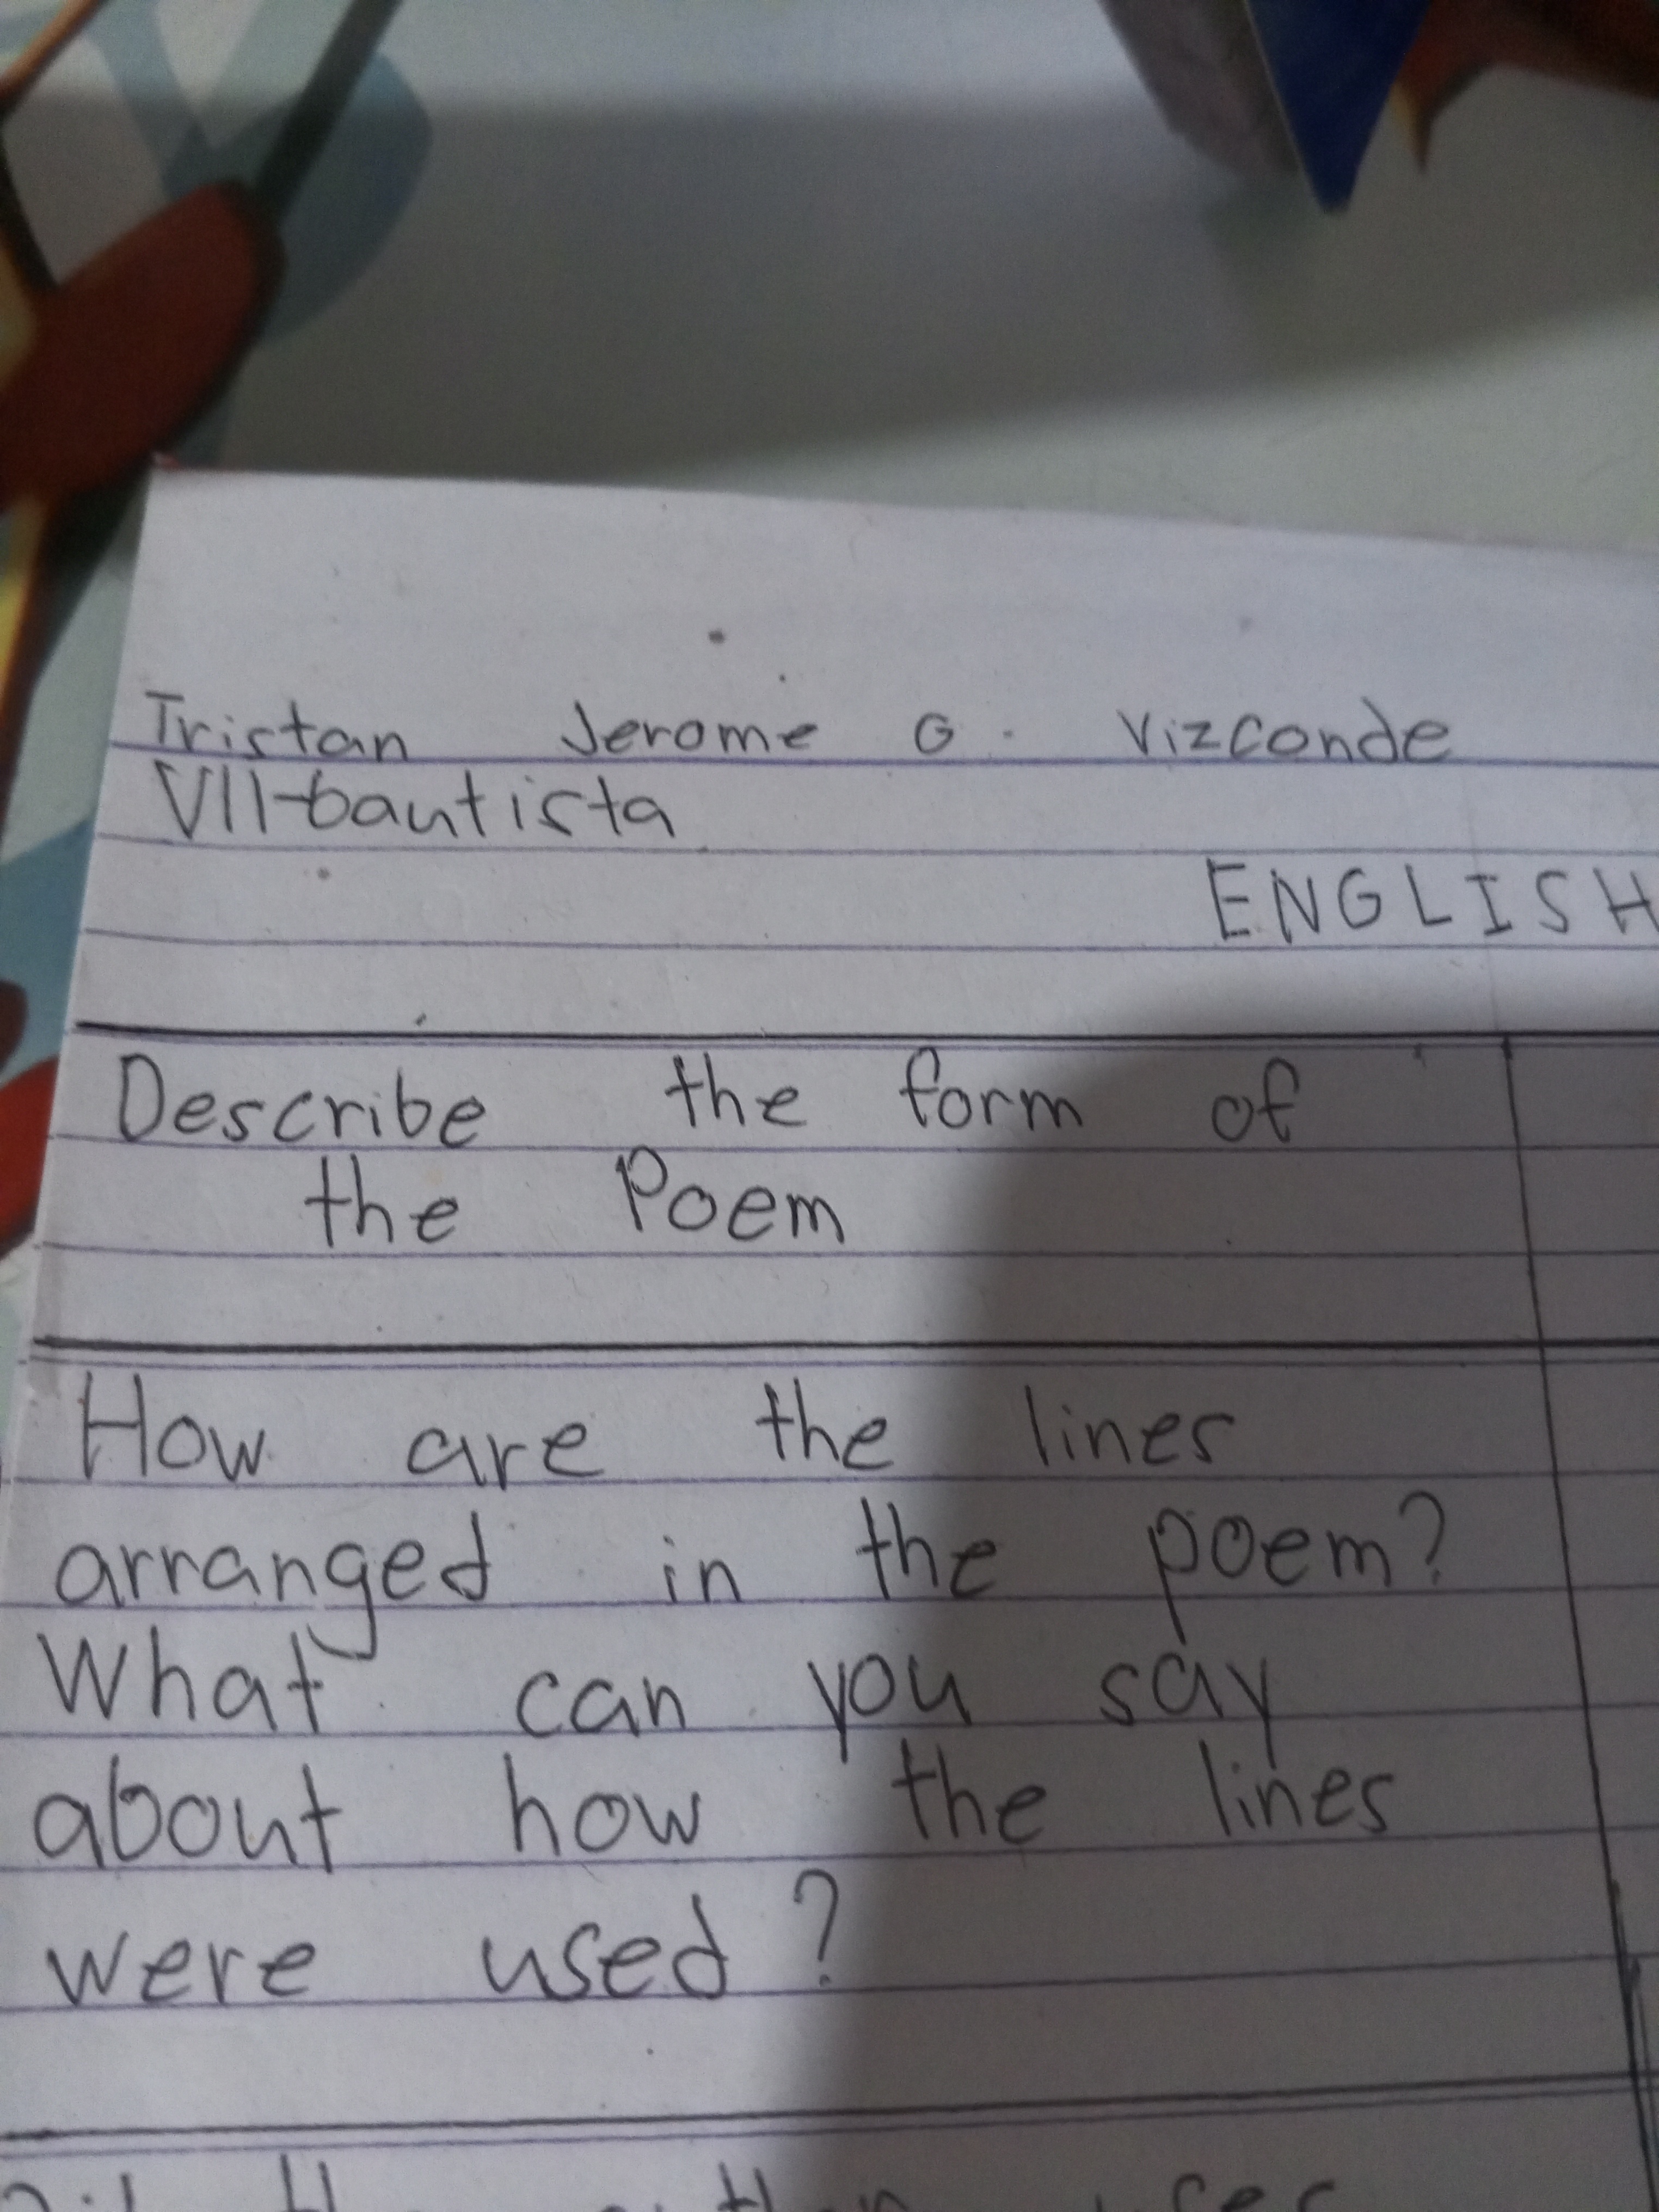 Tristan Jerome G. Vizconde
VII-bautista
ENGLISH
Describe the form of
the Poem
How are the lines
arranged in the poem?
What can you say
about how the lines
were used?